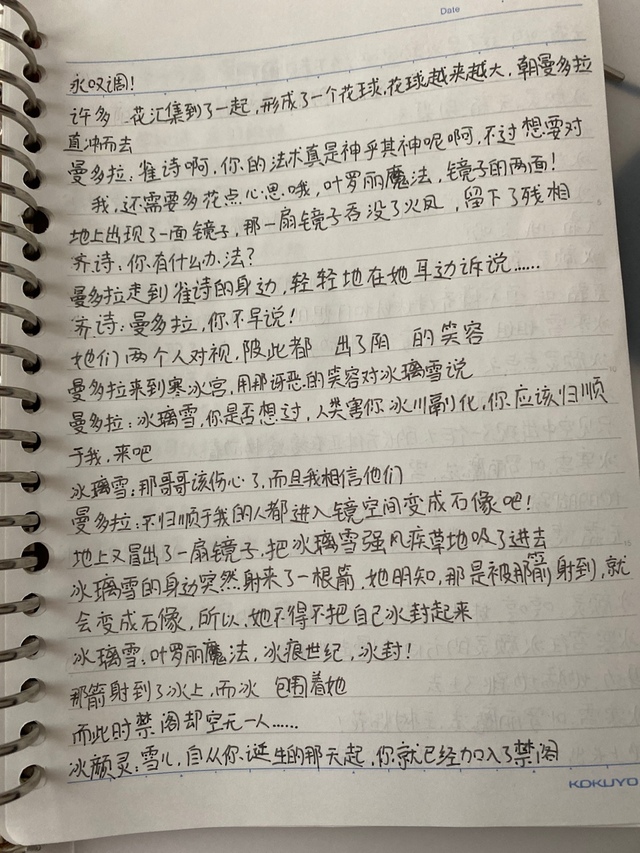 Date
永叹调!
许多 花汇集到了一起,形成了一个花球,花球越来越大,朝曼多拉
直冲而去
曼多拉:雀诗啊,你的法术真是神乎其神呢啊,不过想要对
我,还需要多花点心思哦,叶罗丽魔法,镜子的两面!
地上出现了一面镜子,那一扇镜子吞没了火凤,留下了残相
齐诗:你有什么办法?
曼多拉走到雀诗的身边,轻轻地在她耳边诉说……
齐诗:曼多拉,你不早说!
她们两个人对视,陂此都 出了阴 的笑容
曼多拉来到寒冰宫,用那讶恶的笑容对冰璃雪说
曼多拉:冰璃雪,你是否想过,人类害你冰川融化,你应该归顺
于我,来吧
冰璃雪:那哥哥该伤心了,而且我相信他们
曼多拉:不归顺于我的人都进入镜空间变成石像吧!
地上又冒出了一扇镜子,把冰璃雪强风疾草地吸了进去
冰璃雪的身边突然射来了一根箭,她明知,那是被那箭射到,就
会变成石像,所以,她不得不把自己冰封起来
冰璃雪:叶罗丽魔法,冰痕世纪,冰封!
那箭射到了冰上,而冰 包围着她
而此时禁阁却空无一人……
冰颜灵:雪儿,自从你诞生的那天起,你就已经加入了禁阁
KOKUYO